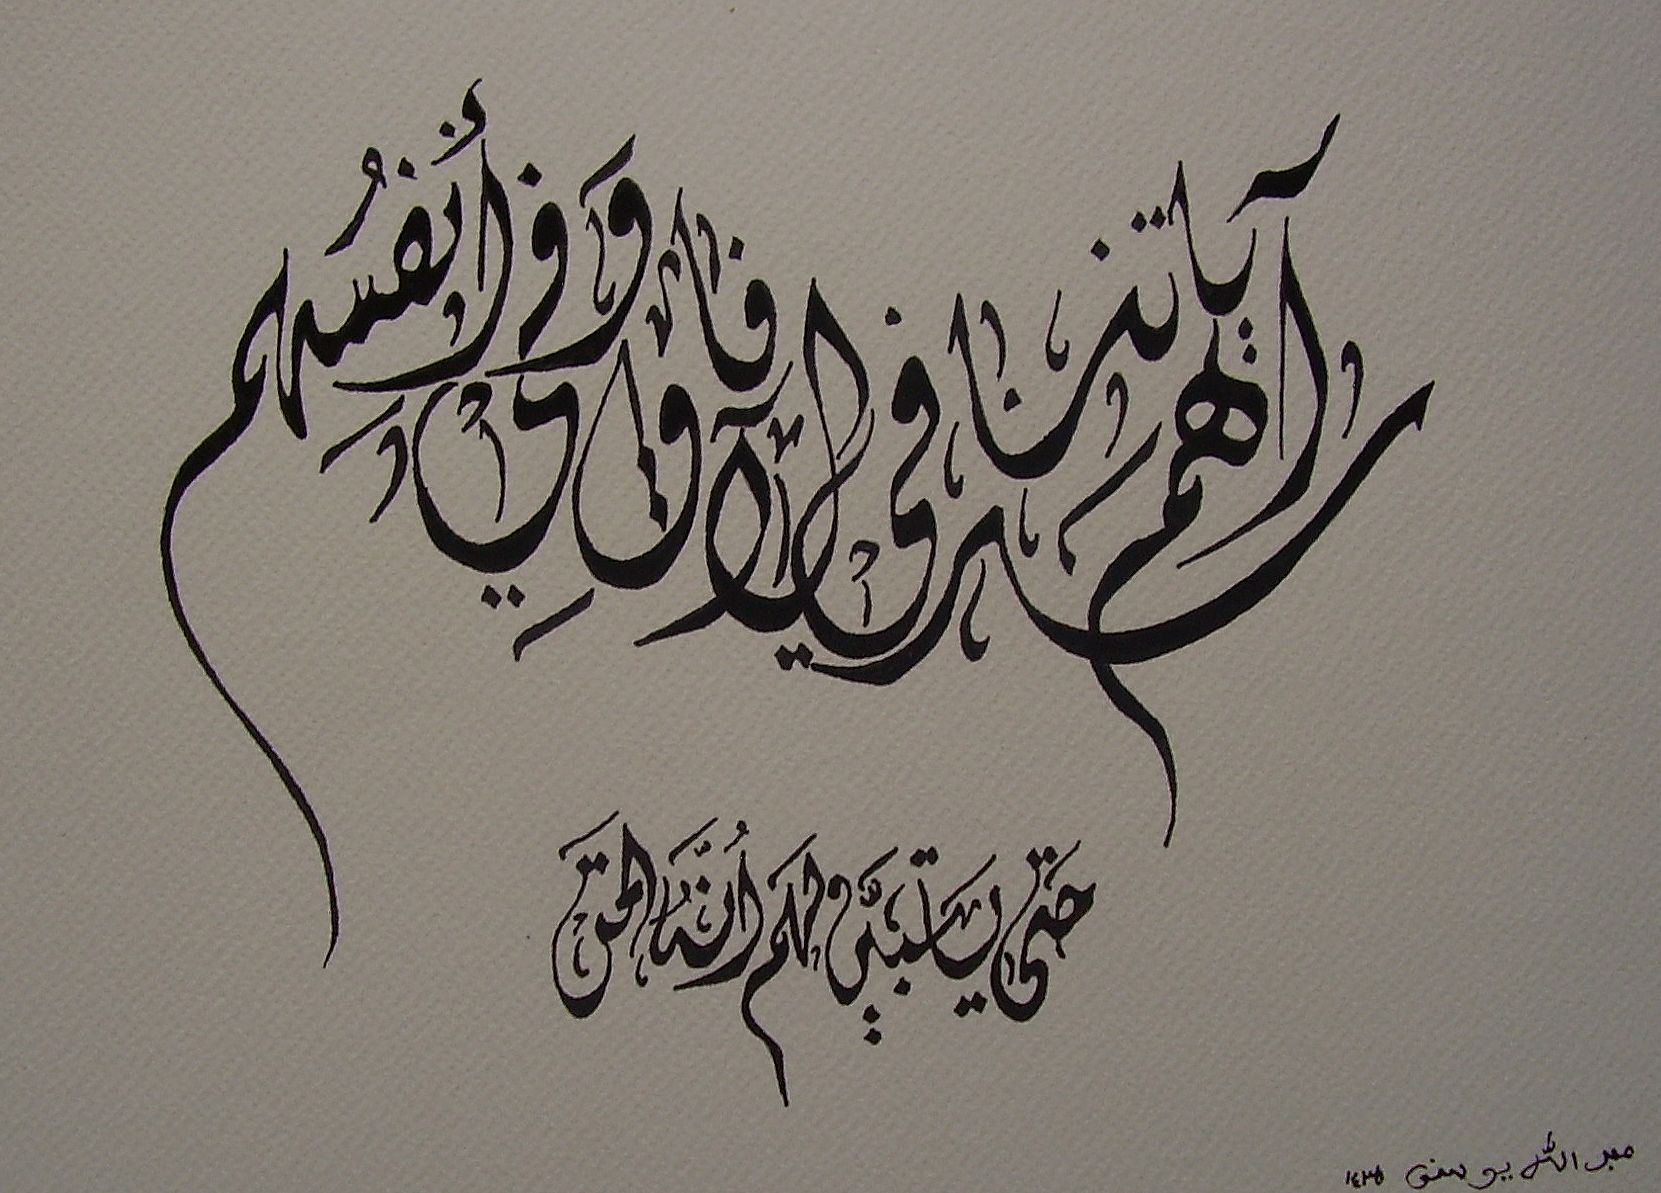 سنريهم آياتنا في الآفاقِ وَفي أَنفُسِهِم
حَتى يَتَبيَّن لَهم أنَّهُ الحَق
عبد الله يوسف ١٤٣٥